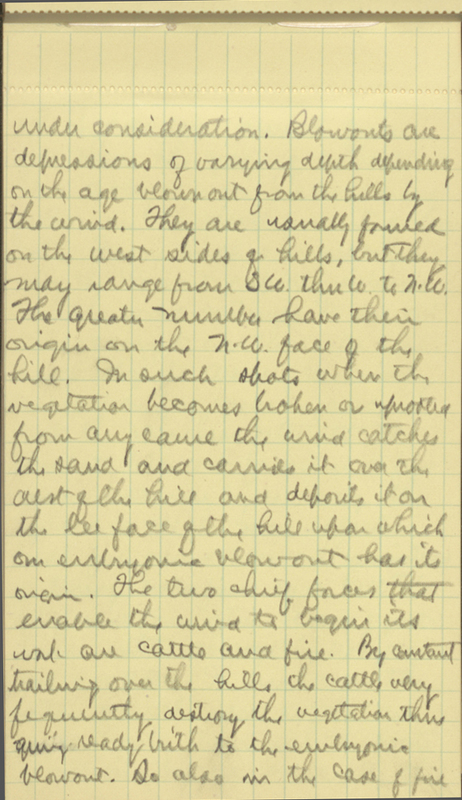 under consideration. Blowouts are
depressions of varying depth depending
on the age blown out from the hills by
the wind. They are usually formed
on the west sides of hills, but they
may range from SW. thru W. to N.W.
The greater number have their
origin on the N.W. face of the
hill. In such spots when the
vegetation becomes broken or uprooted
from any cause the wind catches
the sand and carries it over the
crest of the hill and deposits it on
the lee face of the hill upon which
an embryonic blowout has its
origin. The two chief forces that
enable the wind to begin its
work are cattle and fire. By constant
trailing over the hills the cattle very
frequently destroy the vegetation thus
giving ready birth to the embryonic
blowout. So also in the case of fire